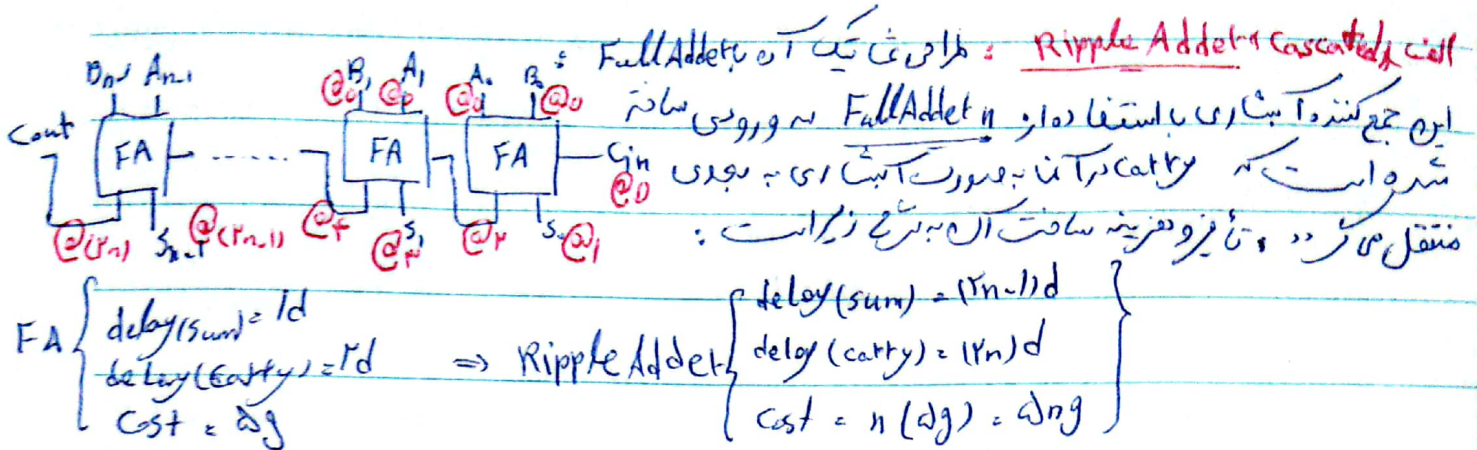 الف) Ripple Adder یا Cascated : طراحی یک آن با FullAdder :
این جمع کننده آبشاری با استفاده از n FullAdder سه ورودی ساخته
شده است که carry در آنها به صورت آبشاری به بعدی
منتقل می گردد و تأخیر و هزینه ساخت آن به شرح زیر است :
Bn-1 An-1 B1 A1 A0 B0
@0 @0 @0 @0
Cout FA ...... FA FA Cin
@0
@(2n) Sn-1 @(2n-1) @4 S1 @3 @2 S0 @1
FA { delay(sum) = 1d
delay(carry) = 2d
Cost = 5g
=> Ripple Adder { delay(sum) = (2n-1)d
delay(carry) = (2n)d
Cost = n(5g) = 5ng }